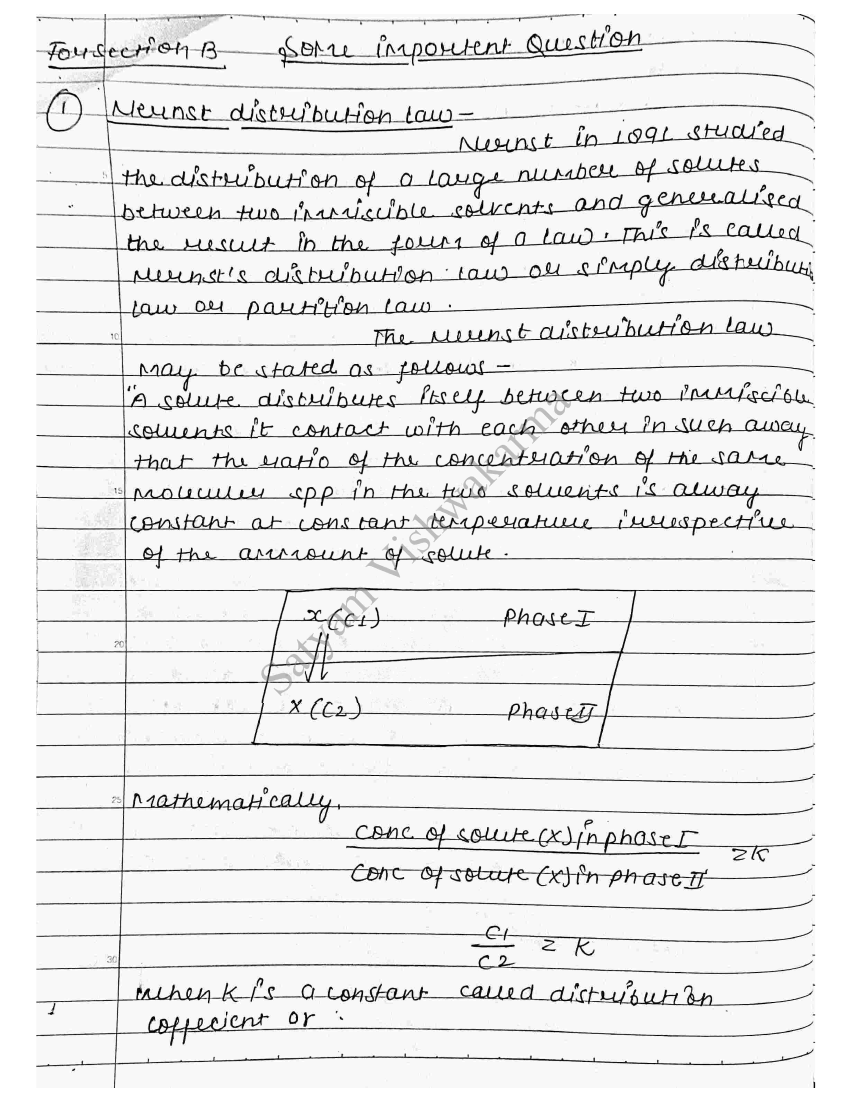 For section B Some importent Question
① Nernst distribution law –
Nernst in 1891 studied
the distribution of a large number of solutes
between two immiscible solvents and generalised
the result in the form of a law. This is called
Nernst's distribution law or simply distributi
law or partition law.
10
The Nernst distribution law
may be stated as follows –
"A solute distributes itself between two immiscible
solvents it contact with each other in such away
that the ratio of the concentration of the same
15 molecular spp in the two solvents is alway
constant at constant temperature irrespective
of the ammount of solute.
x (C1) Phase I
20
X (C2) Phase II
25 Mathematically,
conc of solute (X) in phase I
= K
Conc of solute (X) in phase II
C1
= K
C2
30
When K is a constant called distribution
1
cofficient or :
Satyam Vishwakarma